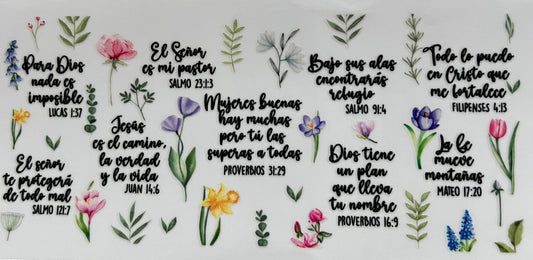 Para Dios
nada es
imposible
LUCAS 1:37
El Señor
es mi pastor
SALMO 23:1:3
Bajo sus alas
encontrarás
refugio
SALMO 91:4
Todo lo puedo
en Cristo que
me fortalece
FILIPENSES 4:13
Jesús
es el camino,
la verdad
y la vida
JUAN 14:6
Mujeres buenas
hay muchas
pero tú las
superas a todas
PROVERBIOS 31:29
El señor
te protegerá
de todo mal
SALMO 121:7
Dios tiene
un plan
que lleva
tu nombre
PROVERBIOS 16:9
La fe
mueve
montañas
MATEO 17:20